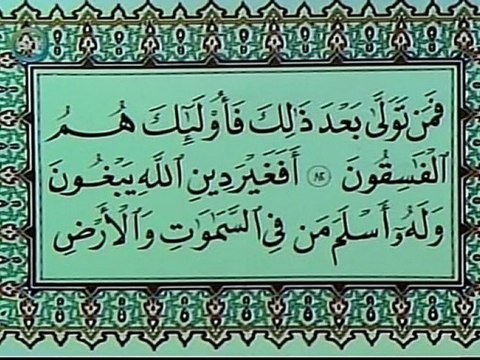 فَمَن تَوَلَّىٰ بَعْدَ ذَٰلِكَ فَأُوْلَٰٓئِكَ هُمُ
ٱلْفَٰسِقُونَ ٨٢ أَفَغَيْرَ دِينِ ٱللَّهِ يَبْغُونَ
وَلَهُۥٓ أَسْلَمَ مَن فِى ٱلسَّمَٰوَٰتِ وَٱلْأَرْضِ